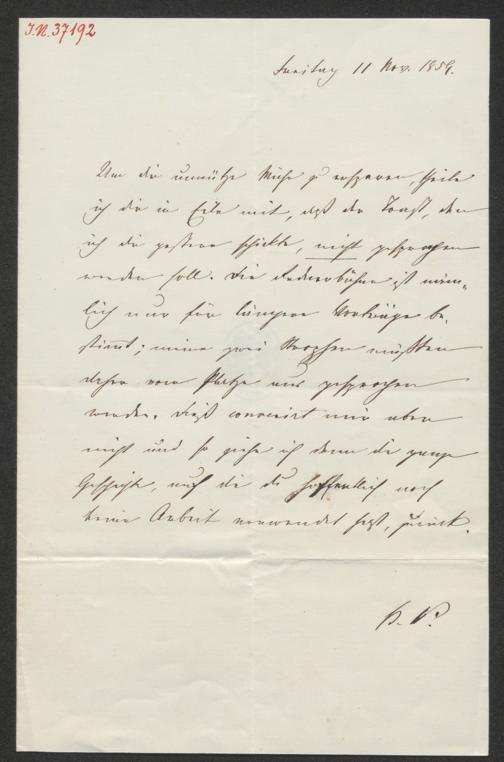 I.N. 37192
Freitag 11 Nov. 1859.
Um dir unnütze Mühe zu ersparen, theile
ich dir in Eile mit, daß der Toast, den
ich dir gestern schickte, nicht gesprochen
werden soll. Die Rednerbühne ist näm-
lich nur für längere Vorträge be-
stimmt; meine zwei Strophen müßten
daher vom Platze aus gesprochen
werden. Dieß convenirt mir aber
nicht und so ziehe ich denn die ganze
Geschichte, auf die du hoffentlich noch
keine Arbeit verwendet hast, zurück.